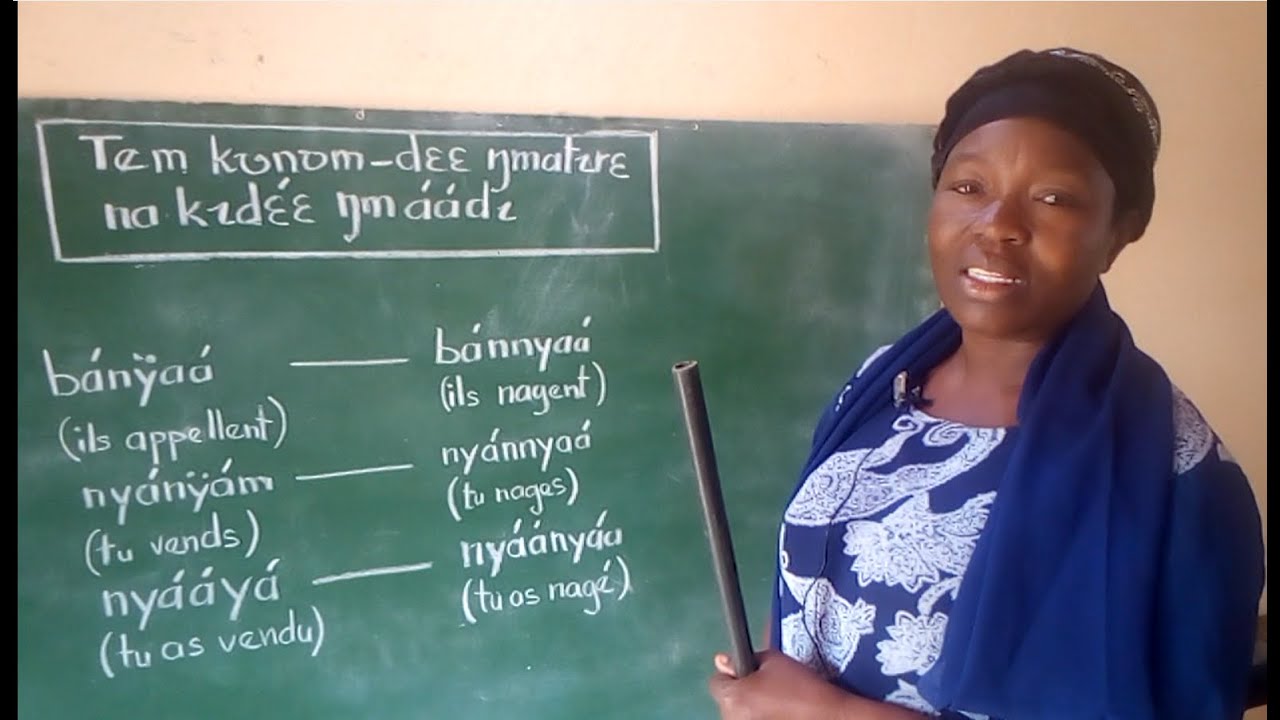 Tɛm kʊnʊm-dɛɛ ŋmatɩrɛ
na kɩdɛ́ɛ ŋmáádɩ
bánÿaá —— bánnyaá
(ils appellent) (ils nagent)
nyánÿám —— nyánnyaá
(tu vends) (tu nages)
nyááyá —— nyáányáa
(tu as vendu) (tu as nagé)